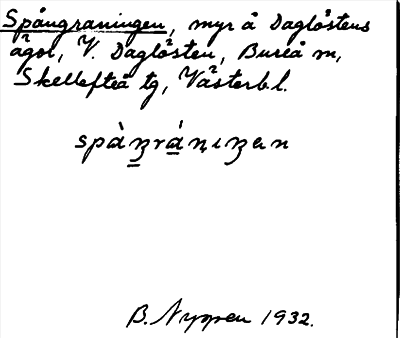 Spångraningen, myr å Daglöstens
ägor, V. Daglösten, Bureå sn,
Skellefteå tg, Västerb.l.
spàŋráṇıŋen
B. Nygren 1932.